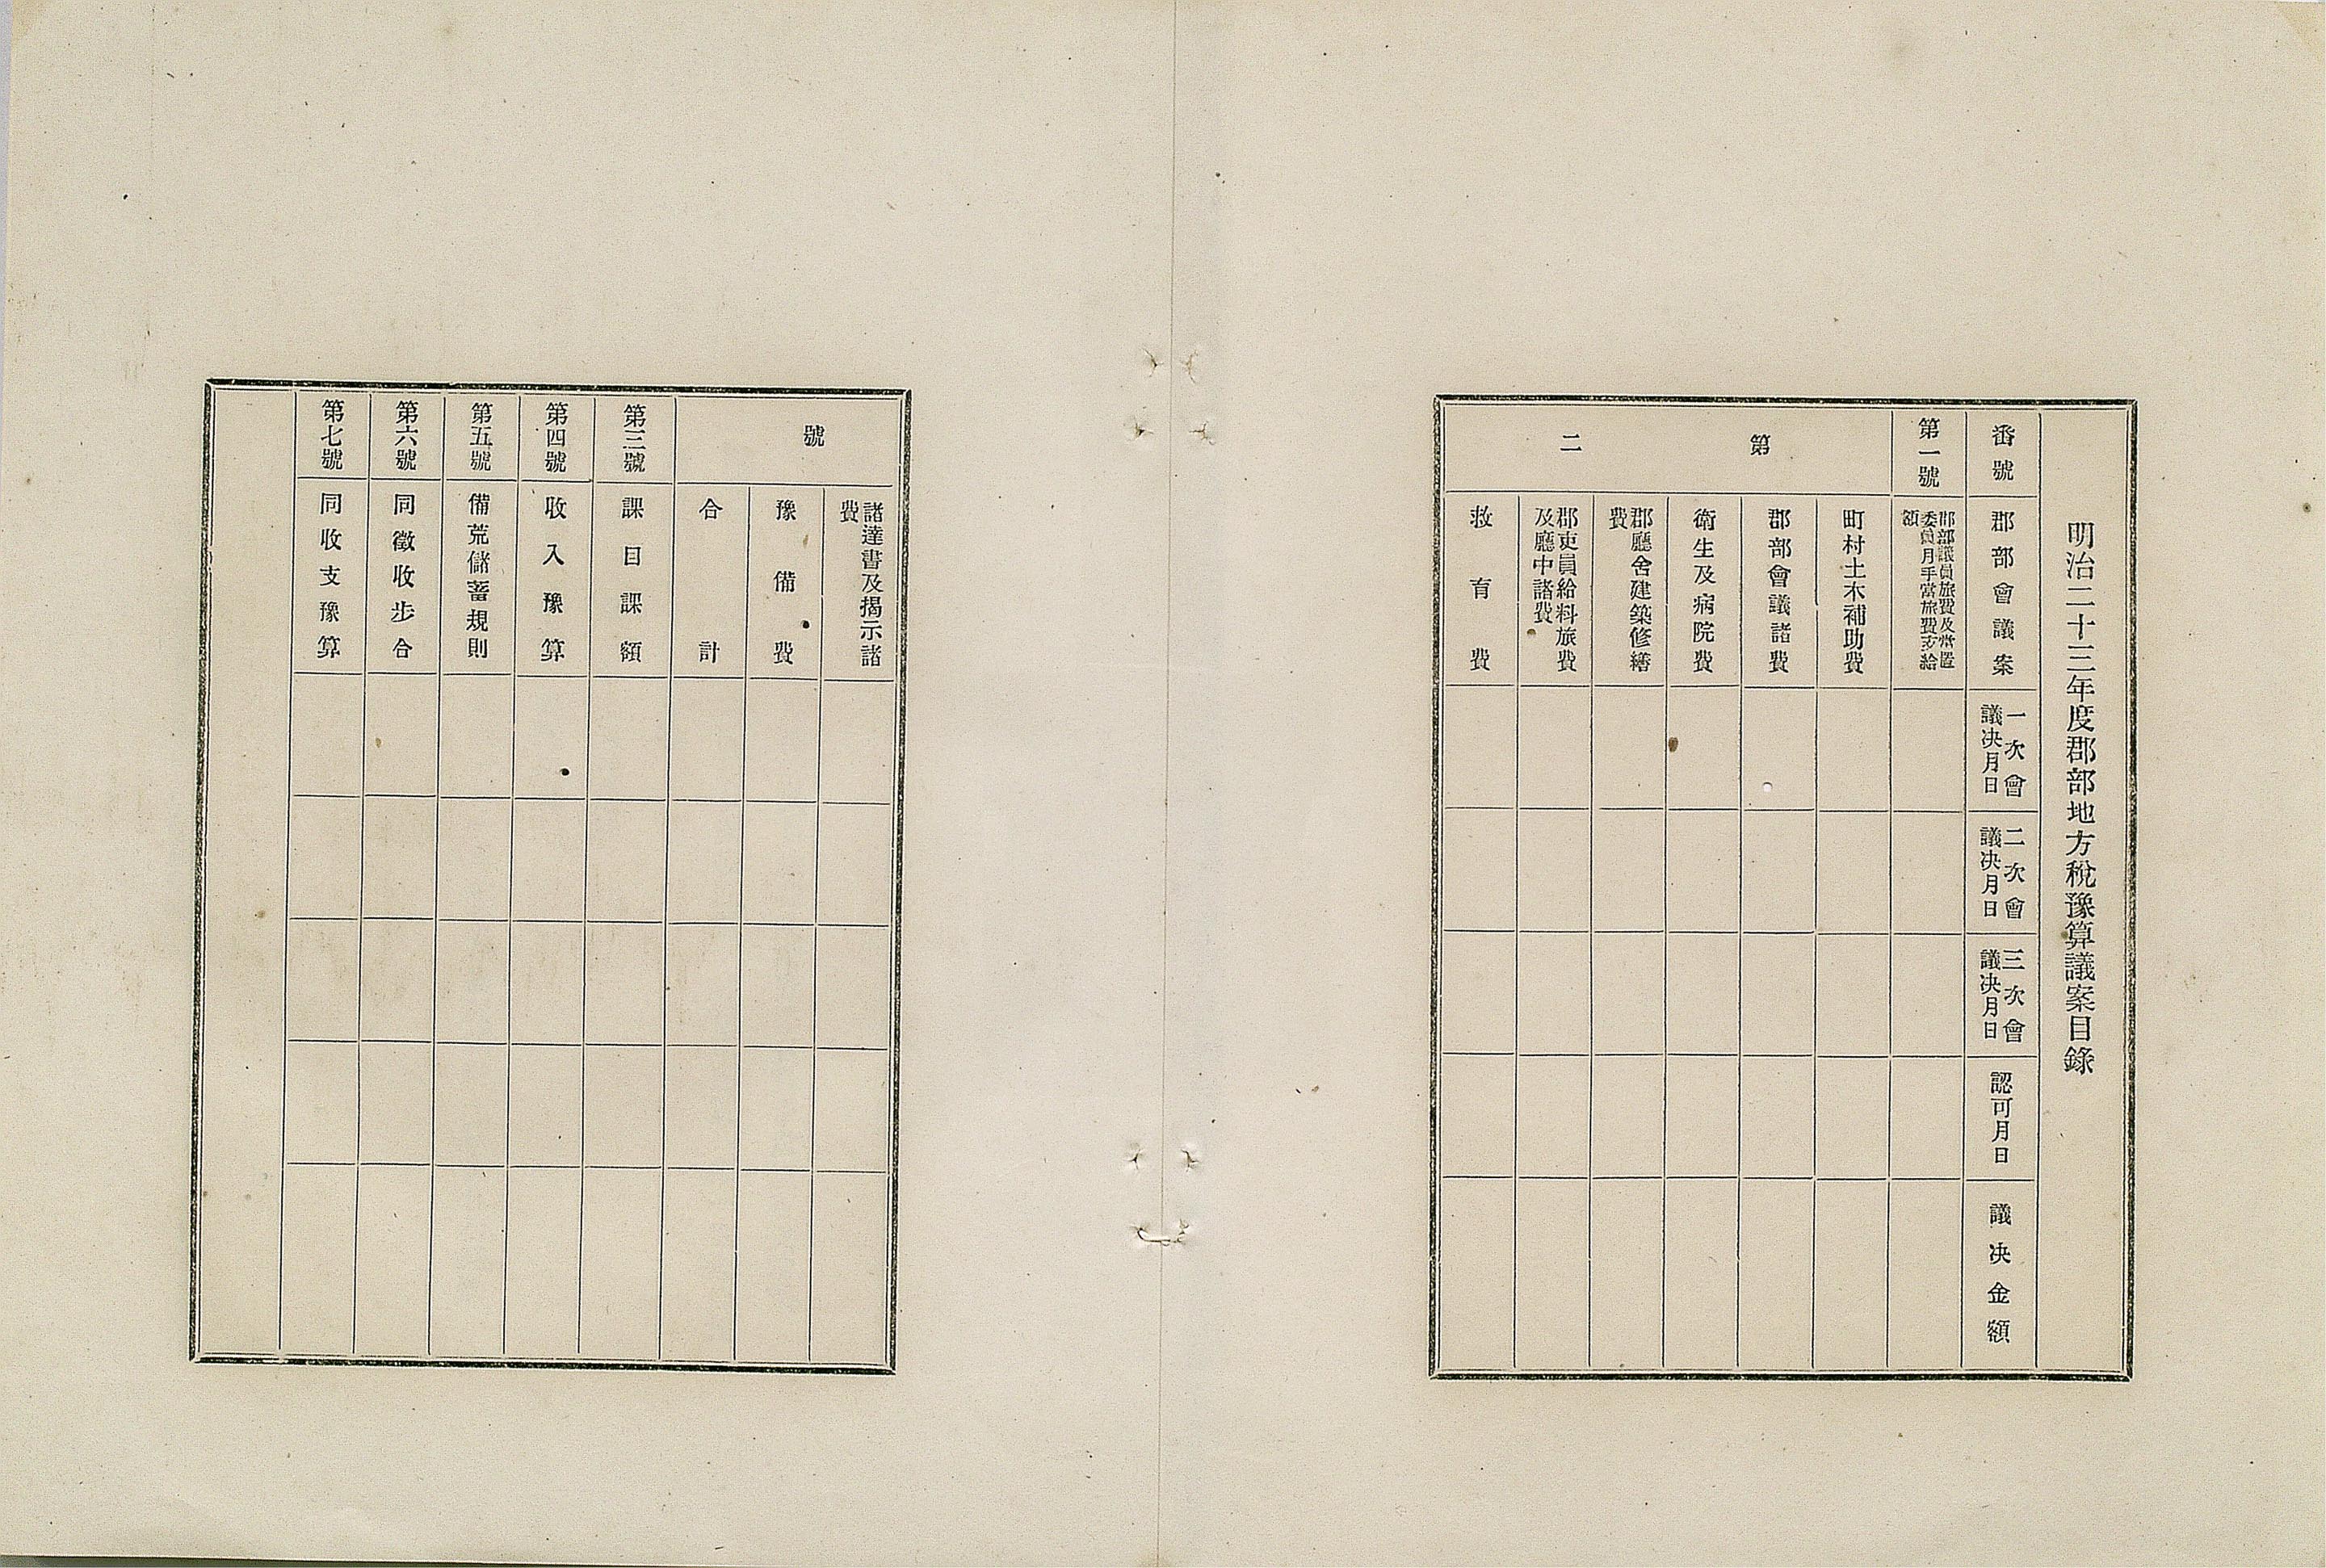 明治二十三年度郡部地方稅豫算議案目錄
番號
郡部會議案
一次會
議决月日
二次會
議决月日
三次會
議决月日
認可月日
議决金額
第一號
郡部議員旅費及常置
委員月手當旅費支給
額
第
二
町村土木補助費
郡部會議諸費
衛生及病院費
郡廳舍建築修繕
費
郡吏員給料旅費
及廳中諸費
救育費
號
諸達書及揭示諸
費
豫備費
合計
第三號
課目課額
第四號
收入豫算
第五號
備荒儲蓄規則
第六號
同徵收步合
第七號
同收支豫算